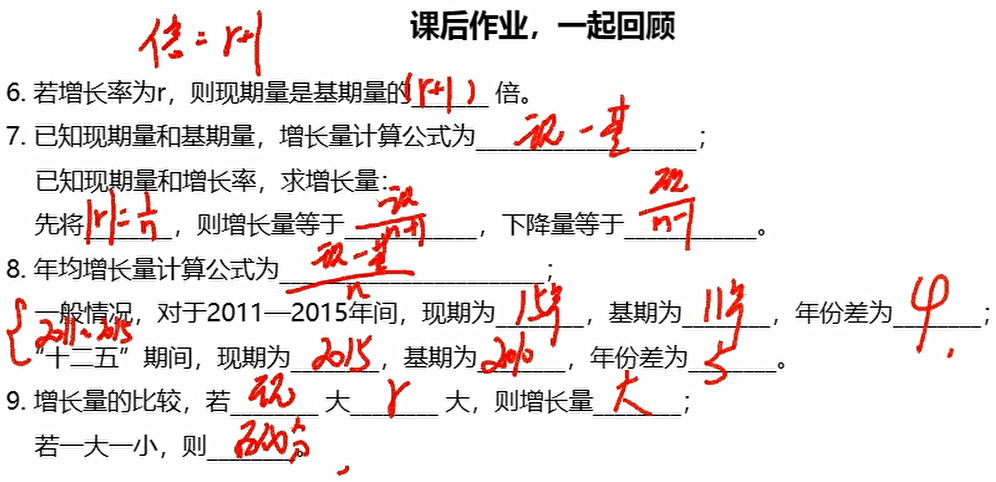 课后作业，一起回顾
倍 = r+1
6. 若增长率为r，则现期量是基期量的(r+1)倍。
7. 已知现期量和基期量，增长量计算公式为现-基；
已知现期量和增长率，求增长量：
先将|r|=1/n，则增长量等于现/n+1，下降量等于现/n-1。
8. 年均增长量计算公式为现-基/n；
一般情况，对于2011—2015年间，现期为15年，基期为11年，年份差为4；
2011~2015
“十二五”期间，现期为2015，基期为2010，年份差为5。
9. 增长量的比较，若现大r大，则增长量大；
若一大一小，则。